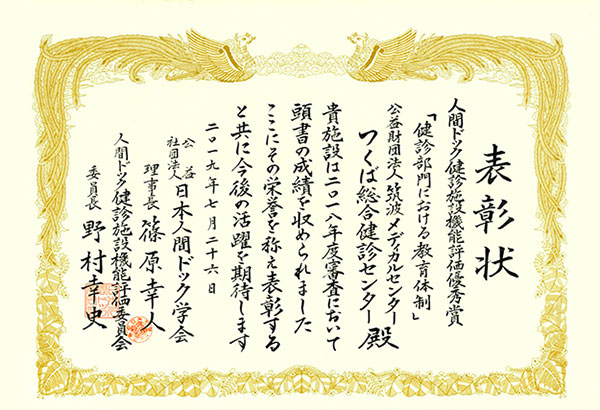 表彰状
人間ドック健診施設機能評価優秀賞
「健診部門における教育体制」
公益財団法人筑波メディカルセンター
つくば総合健診センター 殿
貴施設は二〇一八年度審査において
頭書の成績を収められました
ここにその栄誉を称え表彰する
と共に今後の活躍を期待します
二〇一九年七月二十六日
公益
社団法人 日本人間ドック学会
理事長 篠原幸人
人間ドック健診施設機能評価委員会
委員長 野村幸史